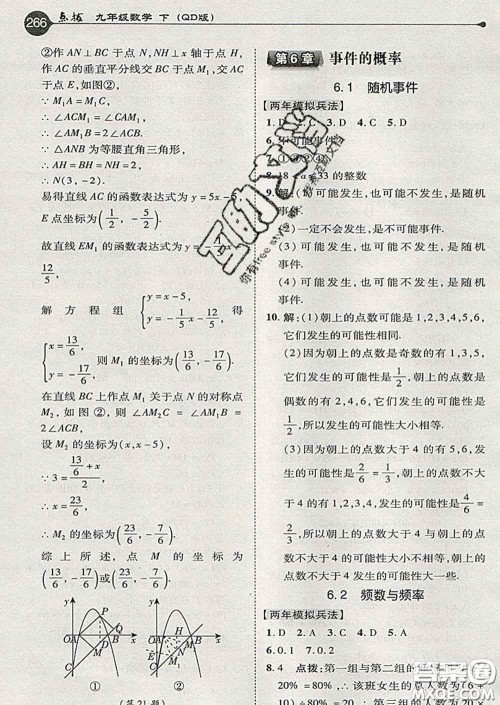 266 点拨 九年级数学 下(QD版)
②作 AN⊥BC 于点 N,NH⊥x 轴于点 H,
作 AC 的垂直平分线交 BC 于点 M₁,交 AC
于点 E,如图②,
∵M₁A=M₁C,
∴∠ACM₁=∠CAM₁.
∴∠AM₁B=2∠ACB.
∵△ANB 为等腰直角三角形,
∴AH=BH=NH=2.
∴N(3,-2).
易得直线 AC 的函数表达式为 y=5x-
E 点坐标为(1/2,-5/2),
故直线 EM₁ 的函数表达式为 y=-1/5 x-
解方程组 { y=x-5, y=-1/5 x-12/5, 得
{ x=13/6, y=-17/6, 则 M₁ 的坐标为(13/6,-17/6).
在直线 BC 上作点 M₁ 关于点 N 的对称点
M₂,如图②,则∠AM₂C=∠AM₁B=
2∠ACB,
设 M₂ 的坐标为(x,x-5),
∵3=(13/6+x)/2,
∴x=23/6.
∴M₂ 的坐标为(23/6,-7/6).
综上所述,点 M 的坐标为
(13/6,-17/6)或(23/6,-7/6).
① ②
(第21题)
第6章 事件的概率
6.1 随机事件
【两年模拟兵法】
1.D 2. 3. 4.C 5.D
6.不可能事件
7.①③④
8. 33 的整数
9.解:(1)可能发生,也可能不发生,是随机
事件.
(2)一定不会发生,是不可能事件.
(3)可能发生,也可能不发生,是随机
事件.
(4)可能发生,也可能不发生,是随机
事件.
10.解:(1)朝上的点数可能是 1,2,3,4,5,6,
它们发生的可能性相同.
(2)因为朝上的点数是奇数的有 1,
3,5,它们发生的可能性是 1/2,朝上的
点数是偶数的有 2,4,6,它们发生的
可能性是 1/2,所以发生的可能性大小
相同.
(3)因为朝上的点数大于 4 的有 5,6,
发生的可能性是 2/6=1/3,朝上的点数
不大于 4 的有 1,2,3,4,发生的可能性是 4/6=
2/3,所以朝上的点数大于 4 与朝上的点数
不大于 4 的可能性大小不相等.
6.2 频数与频率
【两年模拟兵法】
1.D 2.A 3.C 4.A 5.D
6.0.1 7.0.2
8.4 点拨:第一组与第二组的
20%=80%,∴该班女生的总人数为(6+
÷80%=20.∴第三组的人数为 20×
互助文档
你有 free style